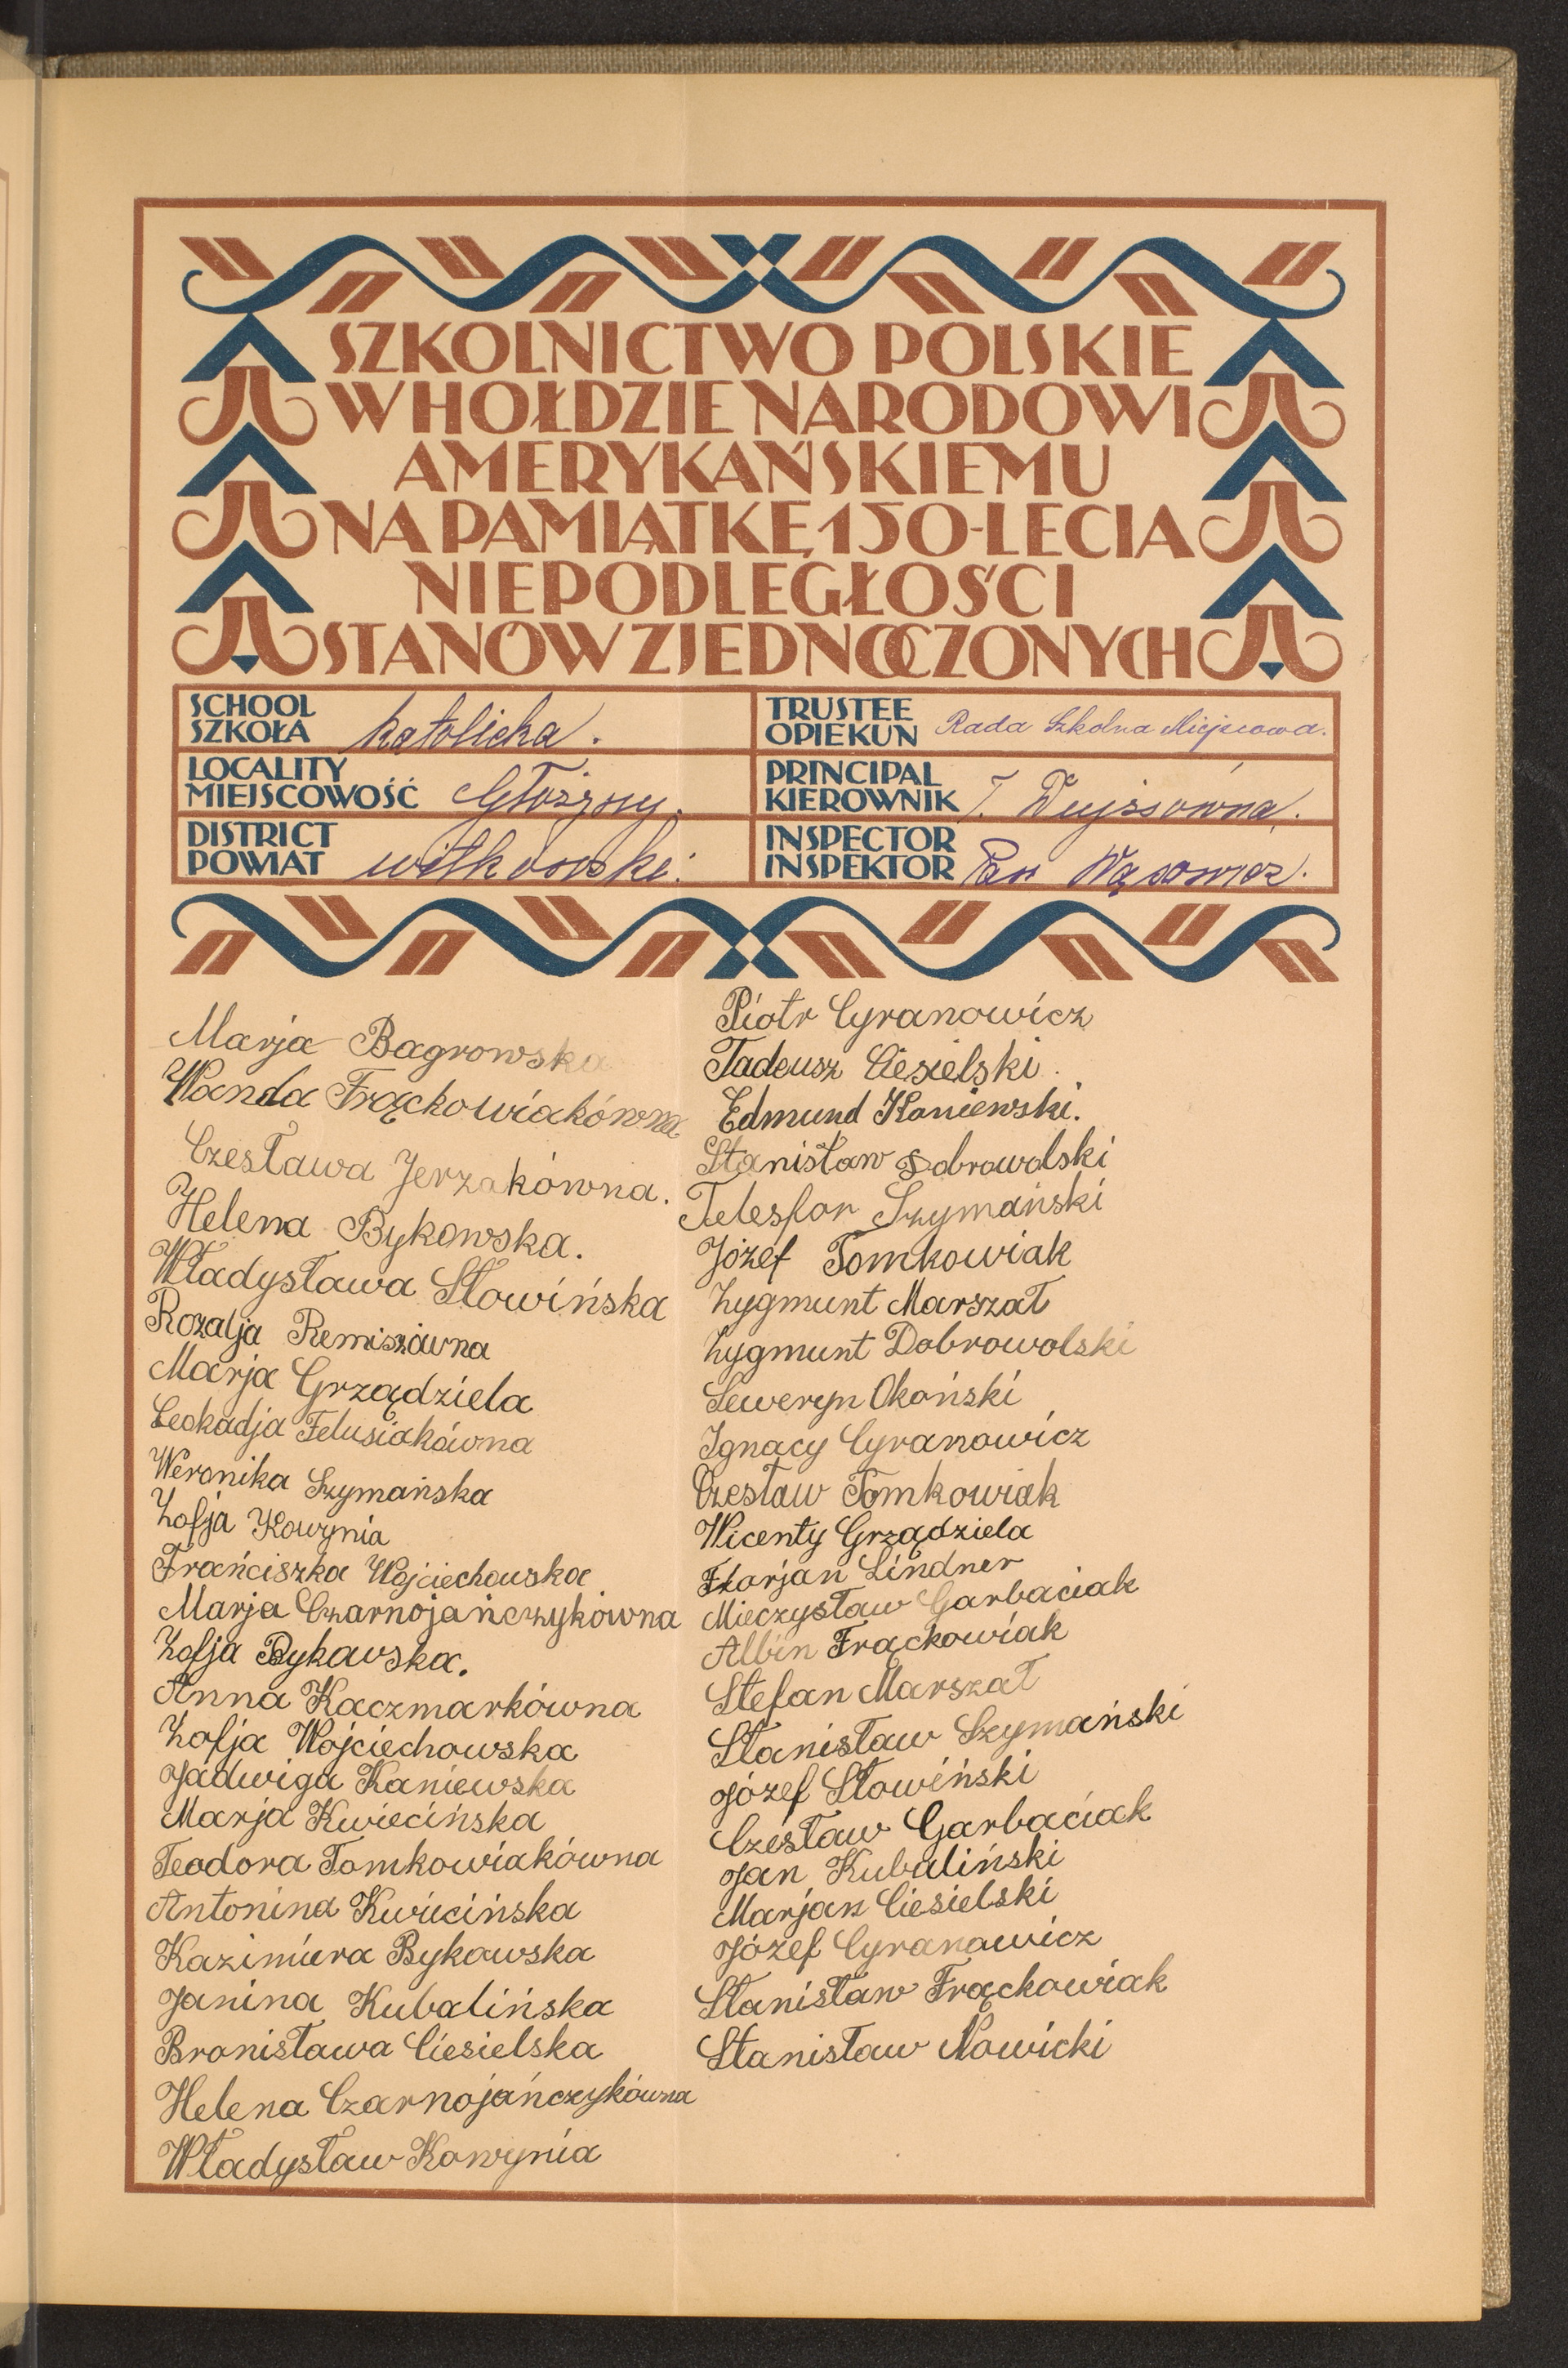 SZKOLNICTWO POLSKIE
W HOŁDZIE NARODOWI
AMERYKAŃSKIEMU
NA PAMIĄTKĘ 150-LECIA
NIEPODLEGŁOŚCI
STANÓW ZJEDNOCZONYCH
SCHOOL
SZKOŁA katolicka.
TRUSTEE
OPIEKUN Rada Szkolna Miejscowa.
LOCALITY
MIEJSCOWOŚĆ Głożyny.
PRINCIPAL
KIEROWNIK T.
DISTRICT
POWIAT witkowski.
INSPECTOR
INSPEKTOR Pan Wąsowicz.
Marja Bagrowska
Wanda Frąckowiakówna
Czesława Jerzakówna.
Helena Bykowska.
Władysława Słowińska
Rozalja Remiszówna
Marja Grządziela
Leokadja Felusiakówna
Weronika Szymańska
Zofja Kowynia
Frańciszka Wojciechowska
Marja Czarnojańczykówna
Zofja Bykowska.
Anna Kaczmarkówna
Zofja Wojciechowska
Jadwiga Kaniewska
Marja Kwiecińska
Teodora Tomkowiakówna
Antonina Kwiecińska
Kazimiera Bykowska
Janina Kubalińska
Bronisława Ciesielska
Helena Czarnojańczykówna
Władysław Kowynia
Piotr Cyranowicz
Tadeusz Ciesielski.
Edmund Kaniewski.
Stanisław Dobrowolski
Telesfor Szymański
Józef Tomkowiak
Zygmunt Marszał
Zygmunt Dobrowolski
Seweryn Okoński
Ignacy Cyranowicz
Czesław Tomkowiak
Wicenty Grządziela
Florjan Lindner
Mieczysław Garbaciak
Albin Frąckowiak
Stefan Marszał
Stanisław Szymański
Józef Słowiński
Czesław Garbaciak
Jan Kubaliński
Marjan Ciesielski
Józef Cyranowicz
Stanisław Frąckowiak
Stanisław Nowicki